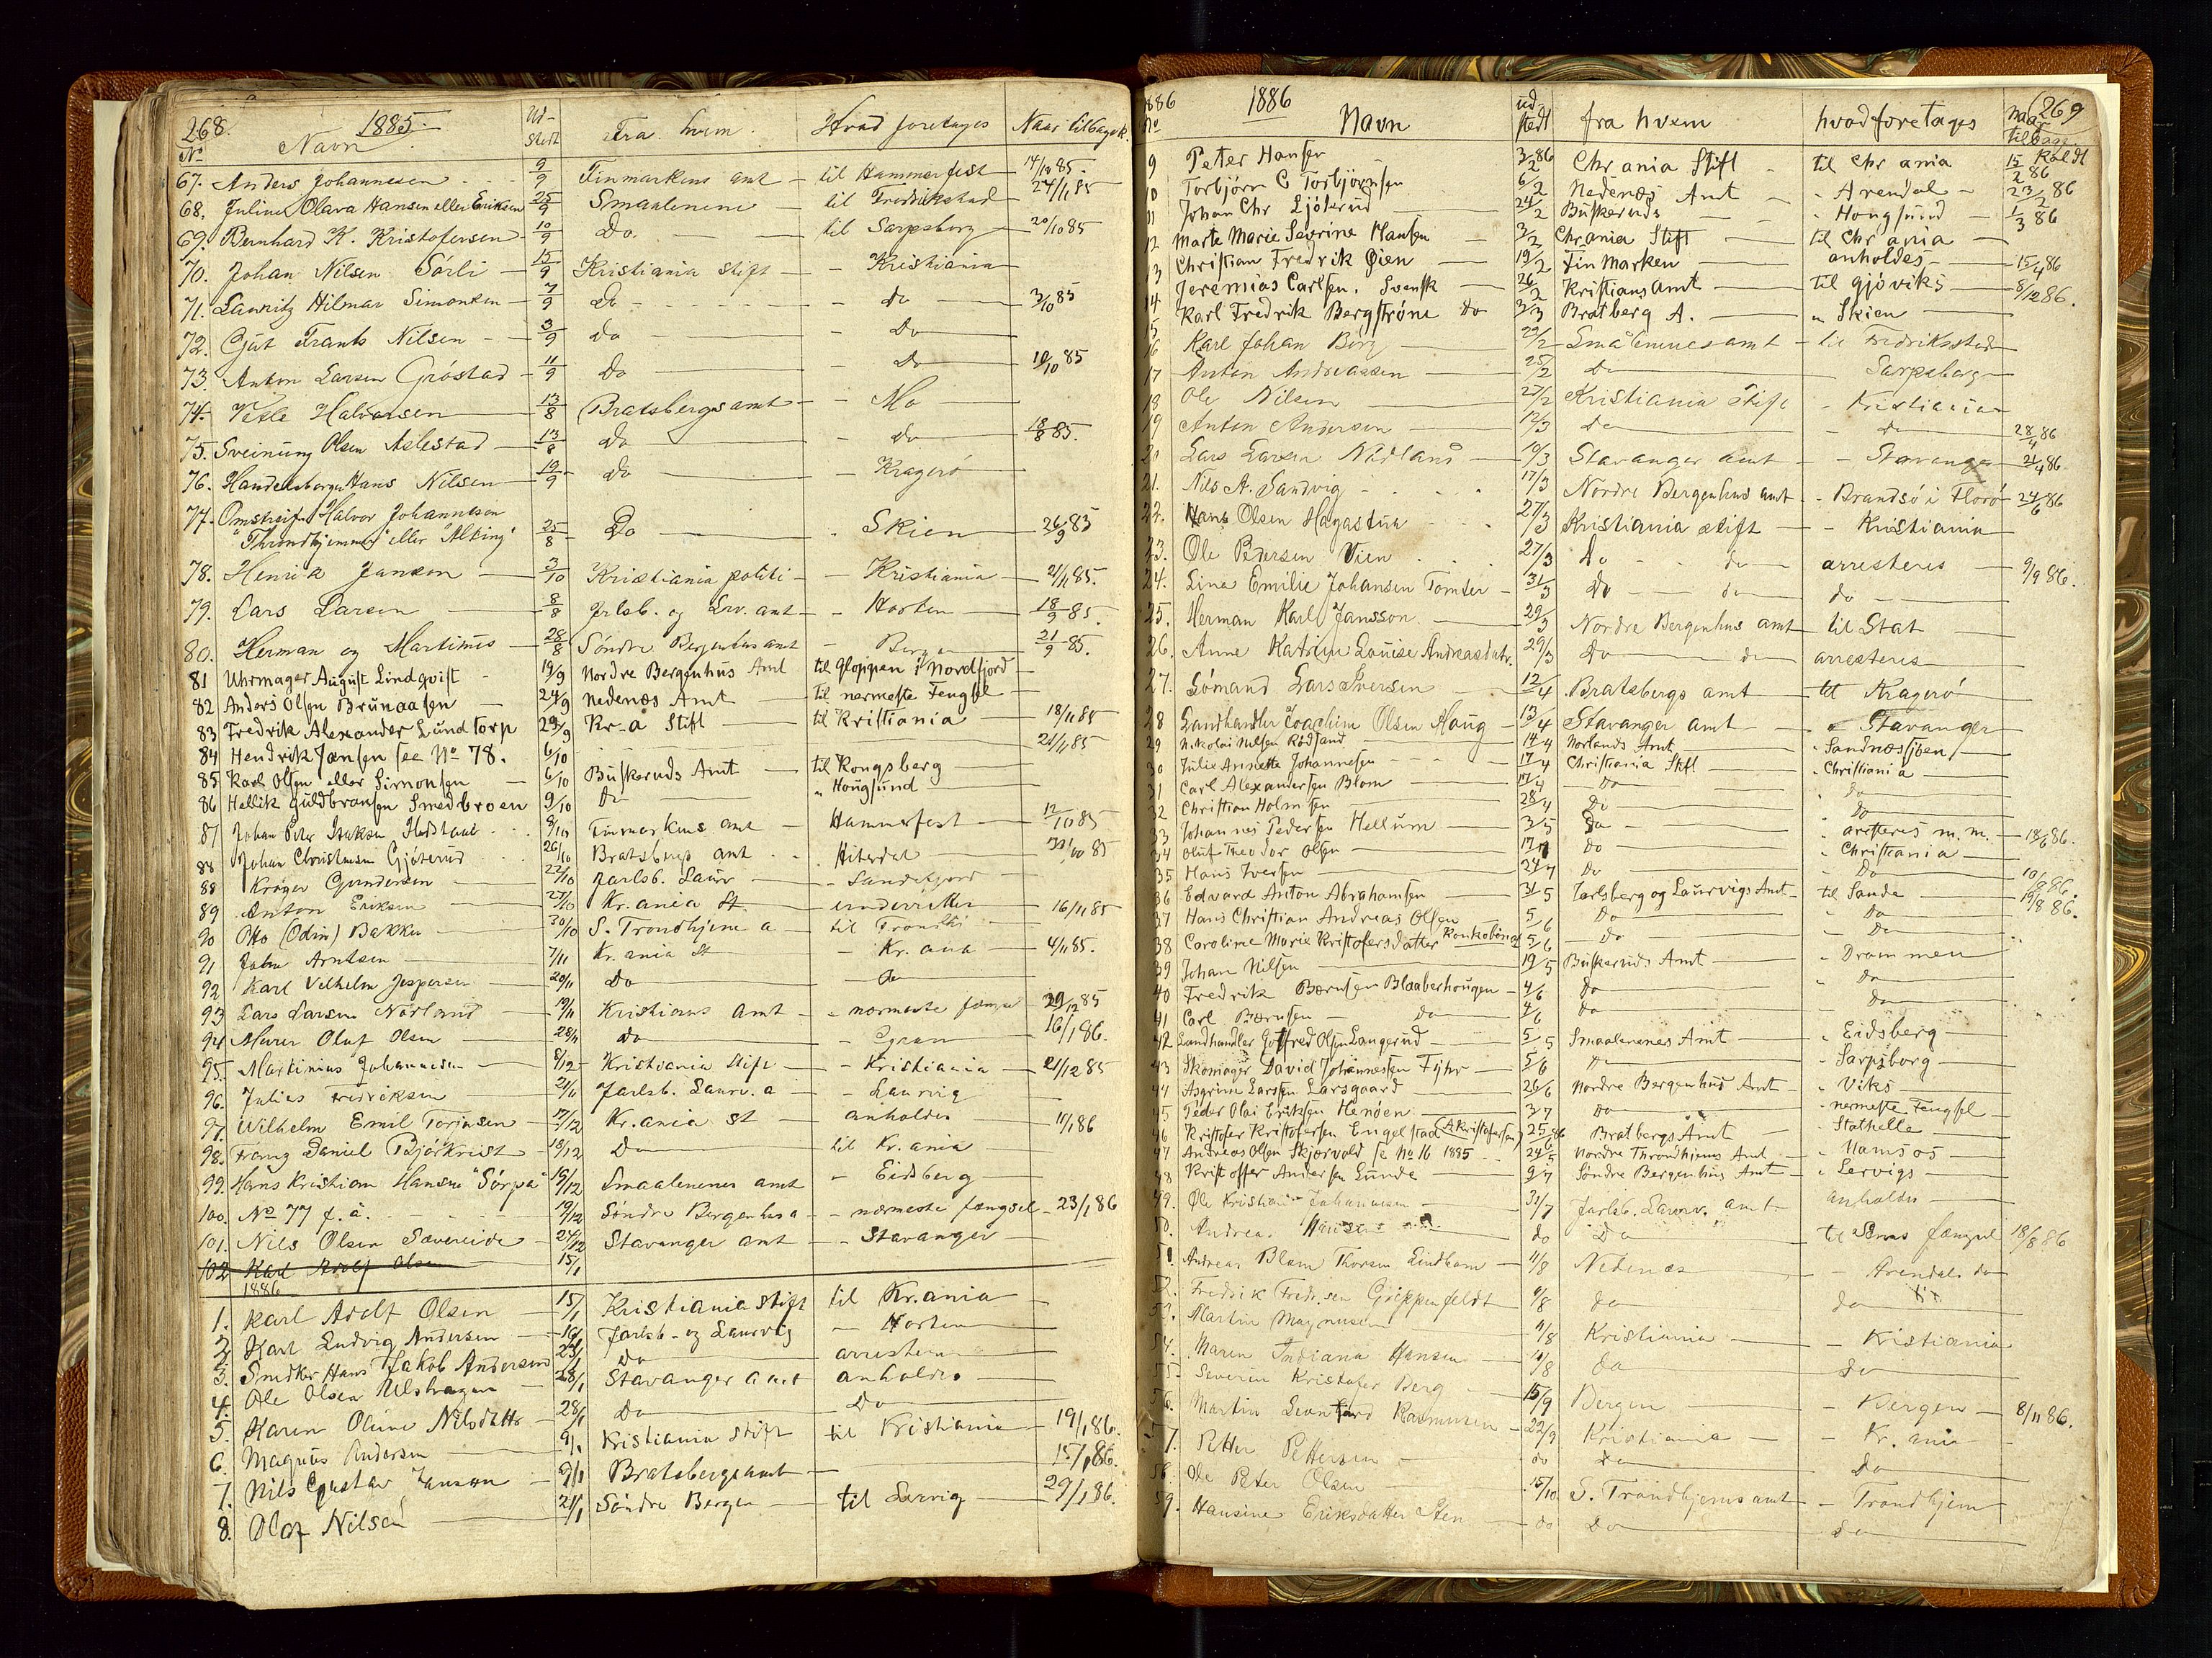 268. 1885.
No Navn Ud-stedt Fra hvem Hvad foretages Naar tilbagek.
67. Anders Johannesen 9/9 Finmarkens amt til Hammerfest 14/10 85.
68. Juline Olava Hansen eller Eriksen 25/9 Smaalenene til Fredrikstad 24/11 85
69. Bernhard K. Kristofersen 10/9 Do. til Sarpsborg 20/10 85
70. Johan Nilsen Sörli 15/9 Kristiania stift - Kristiania
71. Lauritz Hilmar Simonsen 7/9 do - do 3/10 85
72. Gut Frants Nilsen 3/9 do - Do
73. Anton Larsen Gróstad 11/9 Do - Do 19/10 85
74. Vetle Halvorsen 13/8 Bratsbergs amt - Mo
75. Sveinung Olsen Aslestad 13/8 do - do 18/8 85.
76. Handelsborger Hans Nilsen 19/9 do - Kragerö
77. Omstreif. Halvor Johannesen
"Throndhjemmer" eller "Alking" 25/8 Do - Skien 26/9 85
78. Henrik Janson 3/10 Kristiania politi - Kristiania 21/11 85.
79. Lars Larsen 8/8 Jrlsb. og Lrv. amt - Horten 18/9 85.
80. Herman og Martinus 28/8 Söndre Bergenhus amt - Bergen 21/9 85.
81 Uhrmager August Lindqvist 19/9 Nordre Bergenhus Amt til Gloppen i Nordfjord
82 Anders Olsen Brunaasen 24/9 Nedenæs Amt til nermeste Fengsel
83 Fredrik Alexander Lundtorp 29/9 Kr-a Stift til Kristiania 18/11 85
84 Hendrik Jansen see No 78. 6/10 21/11 85
85 Karl Olsen eller Simonsen 6/10 Buskeruds Amt til Kongsberg
86 Hellik Guldbransen Smedbroen 9/10 Do " Hougsund
87 Johan Peter Isaksen 8/10 Finmarkens amt - Hammerfest 12/10 85
88 Johan Christensen Gjöterud 26/10 Bratsbergs amt - Hiterdal 85
88 Kröger Gundersen 22/10 Jarlsb. Laurv - Sandefjord
89 Anton Eriksen 27/10 Kr.ania St. underretter 16/11 85
90 Otto (Odin) Bakken 30/10 S. Trondhjem a til Trondhj
91 John Arntsen 7/11 Kr.ania St - Kr.ania 4/11 85.
92 Karl Vilhelm Jespersen 20/11 Do - do
93 Lars Larsen Nörland 19/11 Kristians Amt - nærmeste fængsel 29/12 85
94 Murer Oluf Olsen 28/11 do - Gran 16/1 86.
95. Martinius Johannesen 8/12 Kristiania Stift - Kristiania 21/12 85
96. Julius Fredriksen 21/11 Jarlsb. Laurv. a - Laurvig
97. Wilhelm Emil Torjusen 17/12 Kr.ania st anholdes 11/1 86
98. Franz Daniel Björkvist 18/12 Do til Kr.ania
99. Hans Kristian Hansen "Sörpa" 19/12 Smaalenenes amt - Eidsberg
100. No 77 f. å. 19/12 Söndre Bergenhus a - nærmeste fængsel 23/1 86
101. Nils Olsen Sævereide 24/12 Stavanger amt - Stavanger
102 Karl Adolf Olsen 15/1
1886
1. Karl Adolf Olsen 15/1 Kristiania stift til Kr.ania
2. Karl Ludvig Andersen 16/1 Jarlsb- og Laurvig - Horten
3. Snedker Hans Jakob Andersen 23/1 Do arresteres
4. Ole Olsen Ulshagen 28/1 Stavanger amt anholdes
5. Karen Oline Nilsdatter 28/1 Do Do
6. Magnus Andersen 9/1 Kristiania Stift til Kristiania 19/1 86.
7. Nils Gustav Janson 9/1 Bratsbergs amt 15/1 86.
8. Olaf Nilsen 21/1 Söndre Bergen til Lervig 29/1 86.
1886 1886 269
No Navn udstedt fra hvem hvad foretages naar tilbage kaldt
9 Peter Hansen 3/2 86 Chr ania Stift til Chr ania 15/2 86
10 Torbjörn C Torbjörnsen 6/2 Nedenæs Amt " Arendal 23/2 86
11 Johan Chr Ljöterud 24/2 Buskeruds " Hougsund 1/3 86
12 Marte Marie Severine Hansen 3/2 Chrania Stift til Chr ania
13 Christian Fredrik Öien 19/2 Fin Marken anholdes 15/4 86
14 Jeremias Carlsen. Svensk 26/2 Kristians Amt til Gjöviks 8/12 86.
15 Karl Fredrik Bergströne do 3/3 Bratberg A. " Skien
16 Karl Johan Borg 22/2 Smålenenes amt - til Fredriksstad
17 Anton Andreassen 25/2 Do Sarpsborg
18 Ole Nilsen 27/2 Kristiania Stift - Kristiania
19 Anton Andersen 12/3 Do - do 28/4 86
20 Lars Larsen Nådland 19/3 Stavanger amt - Stavanger 21/4 86
21. Nils A. Sandvig 17/3 Nordre Bergenhus amt - Brandsö i Florö 24/6 86
22. Hans Olsen Hagastua 27/3 Kristiania stift - Kristiania
23. Ole Pedersen Vien 27/3 Do do arresteres 9/9 86.
24. Lina Emilie Johansen Tomter 31/3 Do do do
25. Herman Karl Jansson 29/3 Nordre Bergenhus amt til Stat
26. Anne Katrine Louise Andreasdatr. 29/3 Do do arresteres
27. Sömand Lars Iversen 12/4 Bratsbergs amt til Kragerö
28 Landhandler Joachim Olsen Haug 13/4 Stavanger amt - Stavanger
29 Nikolai Nilsen Rödsand 14/4 Norlands Amt " Sandnæssjöen
30 Julie Annette Johannesen 17/4 Christiania Stift " Christiania
31 Carl Alexandersen Blom 17/4 Do " Do
32 Christian Holmsen 28/4 Do " Do
33 Johannes Pedersen Hellum 3/5 Do " arresteres m. m. 18/6 86.
34 Oluf Theodor Olsen Do " Christiania
35 Hans Iversen Do " Do 10/8 86.
36 Edvard Anton Abrahamsen 31/5 Jarlsberg og Laurvigs Amt til Sande 19/8 86.
37 Hans Christian Andreas Olsen 5/6 Do " Do
38 Caroline Marie Kristofersdatter Konkobine 5/6 Do " Do
39 Johan Nilsen 19/5 Buskeruds Amt " Drammen
40 Fredrik Bærnsen Blaaberhougen 4/6 do " Do
41 Carl Bærnsen Do 4/6 do Do
42 Landhandler Gotfred Olsen Langerud 5/5 Smaalenenes Amt " Eidsberg
43 Skomager David Johannessen Fyhr 5/6 Do " Sarpsborg
44 Asgrim Larsen Larsgaard 26/6 Nordre Bergenhus Amt " Viks
45 Peder Olai Eriksen Henöen 3/7 Do " nermeste Fengsel
46 Kristofer Kristofersen Engelstad (A Kristofersen) 25/6 86 Bratbergs Amt " Stathelle
47 Andreas Olsen Skjærvold se No 16 1885 24/5 Nordre Throndhjems Amt " Namsos
48 Kristoffer Andersen Lunde 9/7 Söndre Bergenhus Amt " Lervigs
49. Ole Kristian Johannesen 31/7 Jarlsb. Laurv. amt anholdes
50. Andreas Hansen do Do til fængsel 18/8 86
51. Andreas Blom Thorsen Lindkom 4/8 Nedenæs - Arendals do
52. Fredrik Fredr.sen Grippenfeldt 4/8 do do
53. Martin Magnusen 4/8 Kristiania - Kristiania
54. Maren Indiana Hansen 11/8 do do
55. Severin Kristofer Berg 15/9 Bergen - Bergen 8/11 86.
56. Martin Leonhard Rasmussen 22/9 Kristiania - Kr.ania
57. Petter Pettersen do Do Do
58. Ole Peter Olsen 15/10 S. Trondhjems amt - Trondhjem
59. Hansine Eriksdatter Sten do Do do